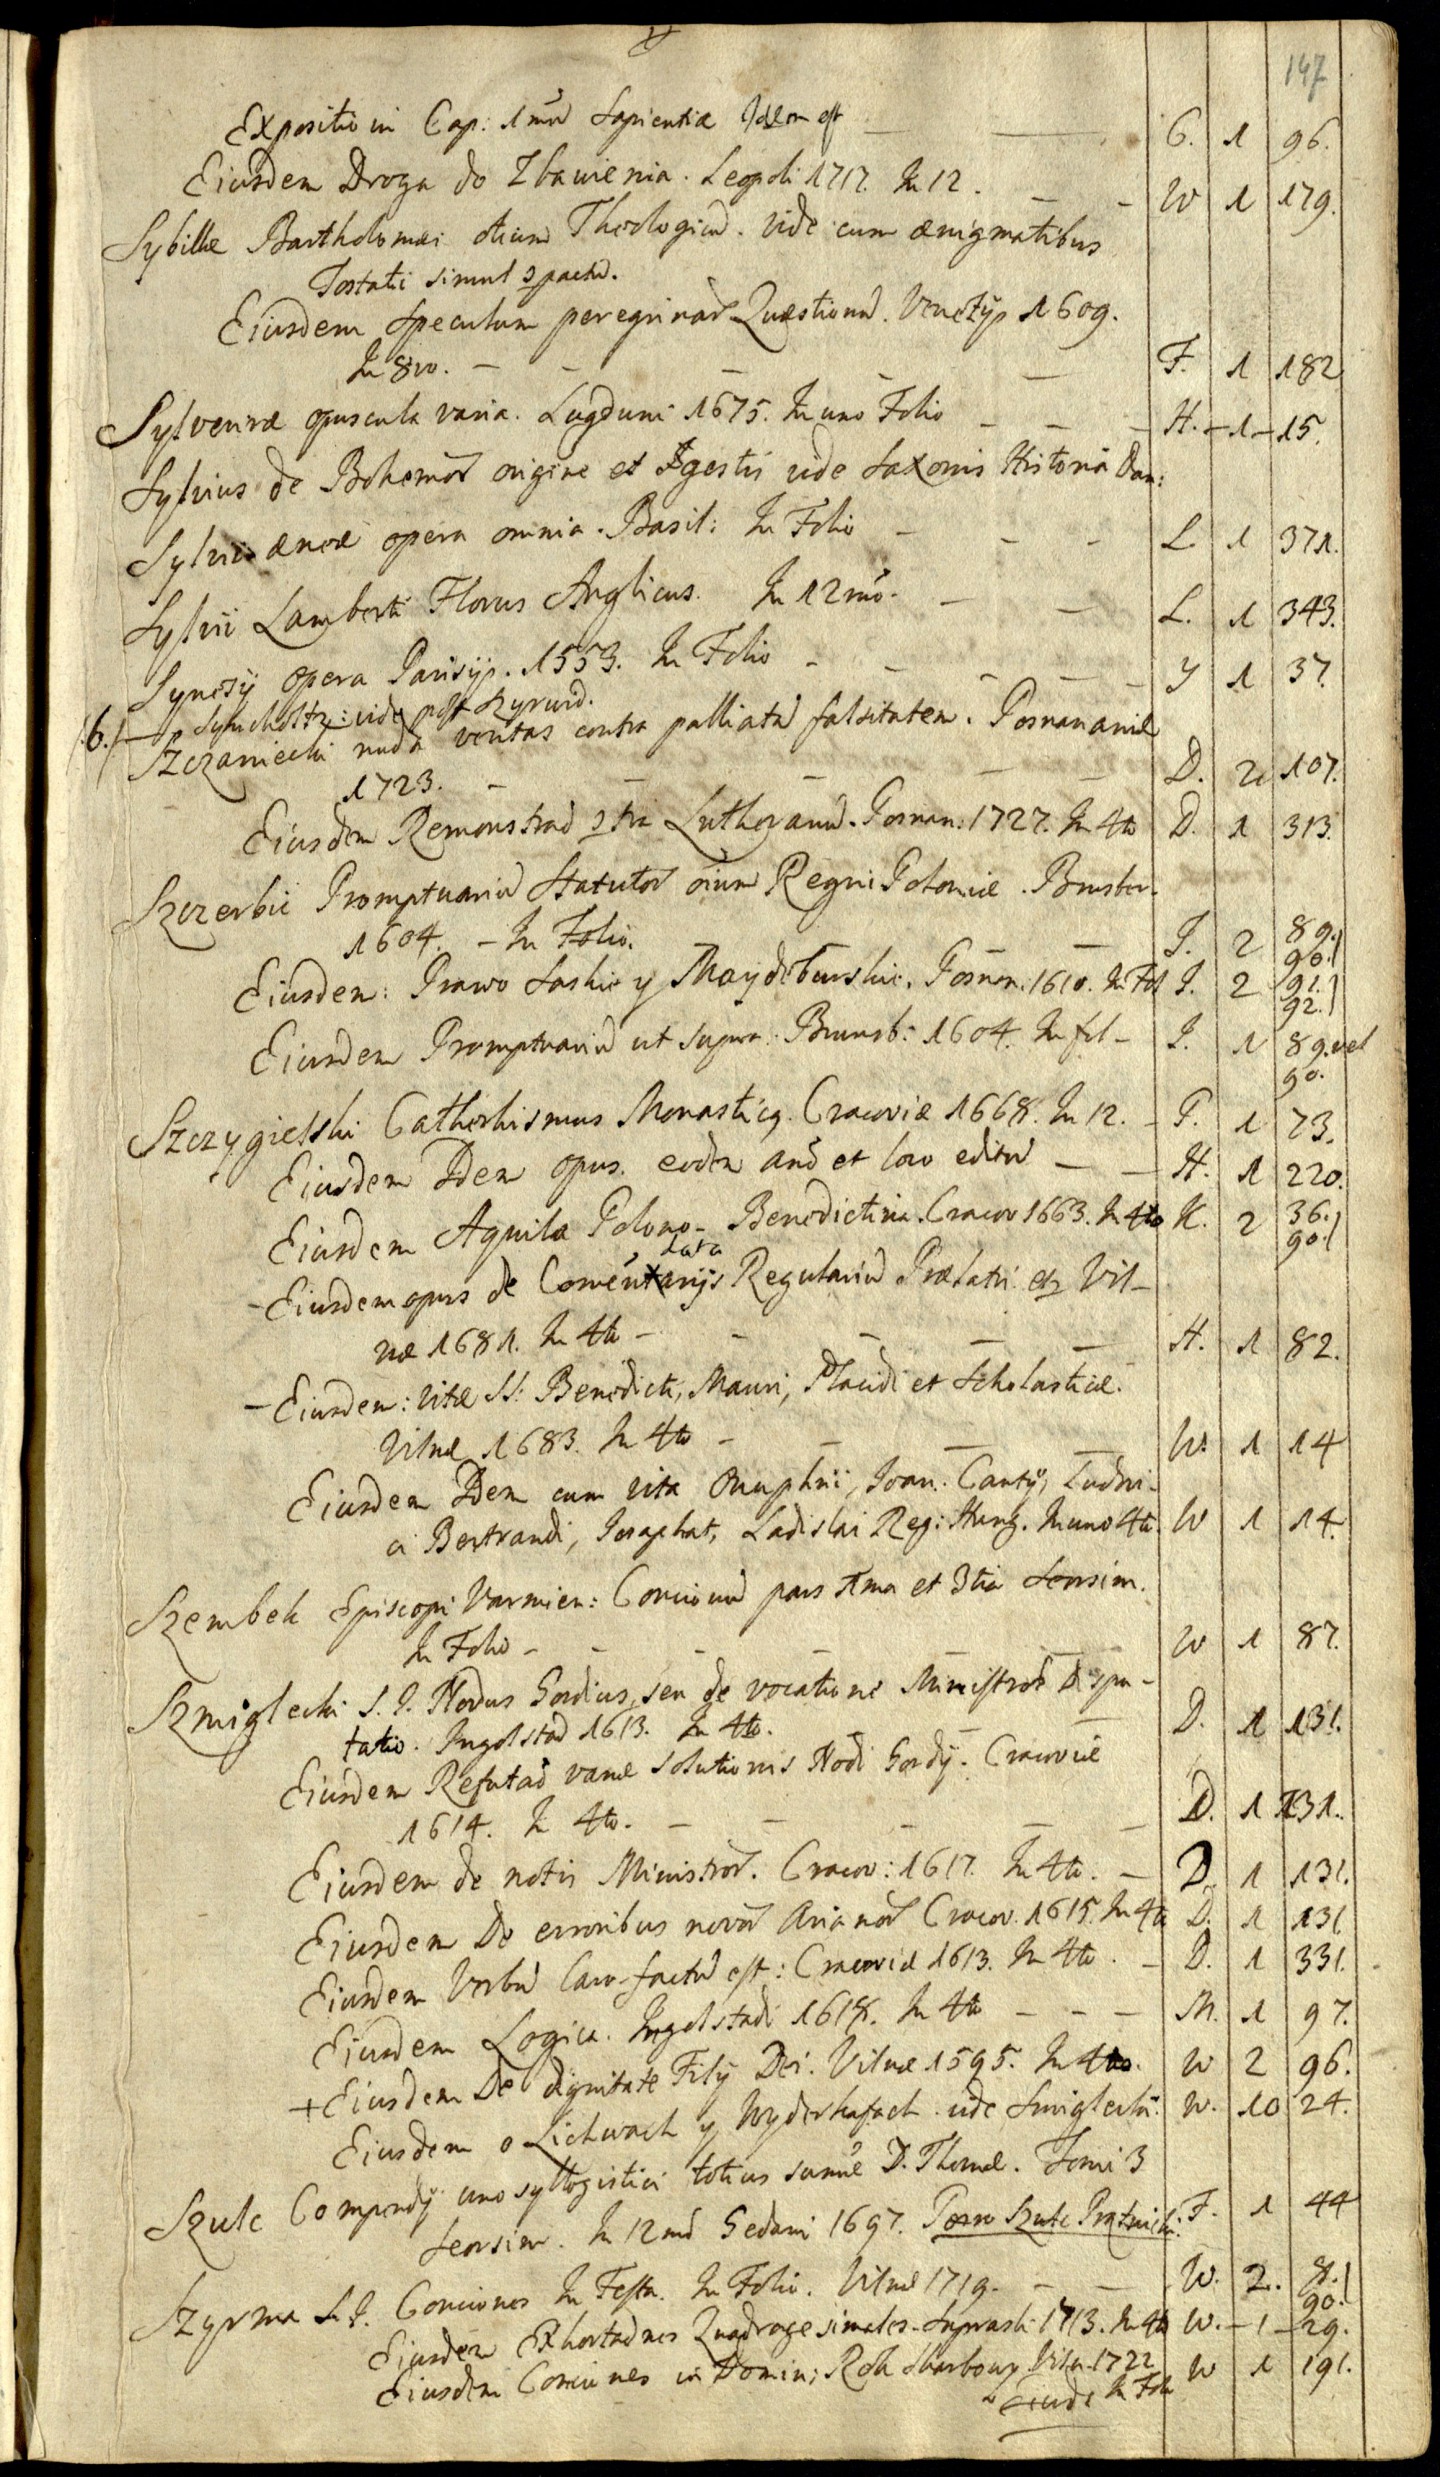 147
Expositio in Cap: 1mū Sapientiæ Idem est — — G. 1 96.
Eiusdem Droga do Zbawienia. Leopoli 1717. In 12. — — W 1 179.
Sybillæ Bartholomæi otium Theologicū. vide cum ænigmatibus
Tostati simul
Eiusdem Speculum peregrinar Quæstionū. Venetijs 1609.
In 8vo. — — — — — F. 1 182
Sylveiræ opuscula varia. Lugduni 1675. In uno Folio — — — H. — 1 — 15.
Sylvius de Bohemor origine et gestis vide Saxonis Historia Dan:
Sylvii æneæ opera omnia. Basil: In Folio — — — L 1 371.
Sylvii Lamberti Florus Anglicus. In 12mo. — — L. 1 343.
Synesij opera Parisijs. 1553. In Folio — — — — — J 1 37.
(6.) — vide post Szyrwid.
Szczaniecki nuda veritas contra palliatā falsitatem. Posnaniæ
1723. — — — — — D. 2 107.
Eiusdem Remonstrao Lutheranū. Posnan: 1727. In 4to D. 1 313.
Szczerbic Promptuariū Statutor oium Regni Poloniæ. Brunsber.
1604. — In Folio. — — J. 2 89. 90.)
Eiusdem: Prawo Saskie y Maydeburskie. Posnan. 1610. In Fol J. 2 91. 92.)
Eiusdem Promptuariū ut supra. Brunsb: 1604. In fol — J. 1 89. vel 90.
Szczygielski Cathechismus Monasticq. Cracoviæ 1668. In 12. — P. 1 73.
Eiusdem Idem opus. eodem anō et loco editū — — H. 1 220.
Eiusdem Aquila Polono-Benedictina. Cracov 1663. In 4to K. 2 36. 90.)
data
— Eiusdem opus de Comentarijs Regulariū Prælatis Vil-
næ 1681. In 4to — — — — — H. 1 82.
— Eiusdem: Vitæ SS: Benedicti, Mauri, Placidi et Scholasticæ.
Vilnæ 1683. In 4to — — — — W. 1 14
Eiusdem Idem cum vita Onuphrii, Joan. Cantij, Ludovi-
ci Bertrandi, Josaphat, Ladislai Reg: Hung. In uno 4to. W 1 14.
Szembek Episcopi Varmien: Concionū pars 1ma et 3tia Seorsim.
In Folio — — — — — W 1 87.
Szmiglecki S. J. Nodus Gordius, seu de vocatione Ministror Dispu-
tatio. Ingolstad 1613. In 4to. — — D. 1 131.
Eiusdem Refutaō vanæ solutionis Nodi Gordij. Cracoviæ
1614. In 4to. — — — — — D. 1 131.
Eiusdem de notis Ministror. Cracov: 1617. In 4to. — D. 1 131.
Eiusdem De erroribus novor Arianor Cracov. 1615. In 4to D. 1 131
Eiusdem Verbū Caro factū est: Cracoviæ 1613. In 4to. — D. 1 331.
Eiusdem Logica. Ingolstadi 1618. In 4to — — — M. 1 97.
+ Eiusdem De dignitate Filij Dei. Vilnæ 1595. In 4to. W 2 96.
Eiusdem o Lichwach y Wyderkafach vide Smiglecki. W. 10 24.
Szulc Compendij uno syllogistici totius sumæ D. Thomæ. Tomi 3
Seorsim. In 12mō Gedani 1697. Porro Szulc F. 1 44
Szyrma S. J. Conciones In Festa. In Folio. Vilnæ 1719. — — W. 2. 8. 90.)
Eiusdem Exhortaones Quadragesimales. Suprasli 1713. In 4to W. — 1 — 29.
Eiusdem Conciones in Domin: Rok Skarbowy Viln. 1722
In Folio W 1 191.